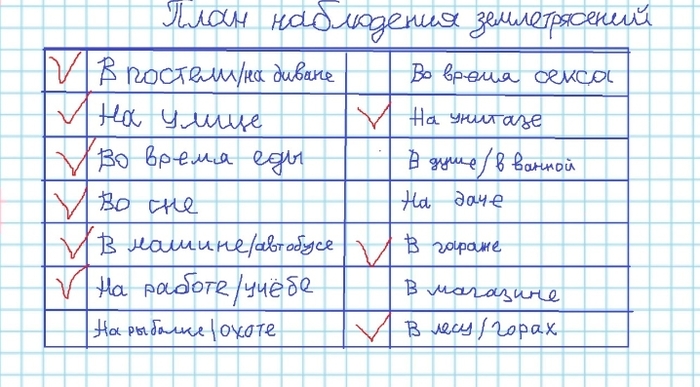 План наблюдения землетрясений
В постели/на диване
Во время секса
На улице
На унитазе
Во время еды
В душе/в ванной
Во сне
На даче
В машине/автобусе
В гараже
На работе/учёбе
В магазине
На рыбалке/охоте
В лесу/горах